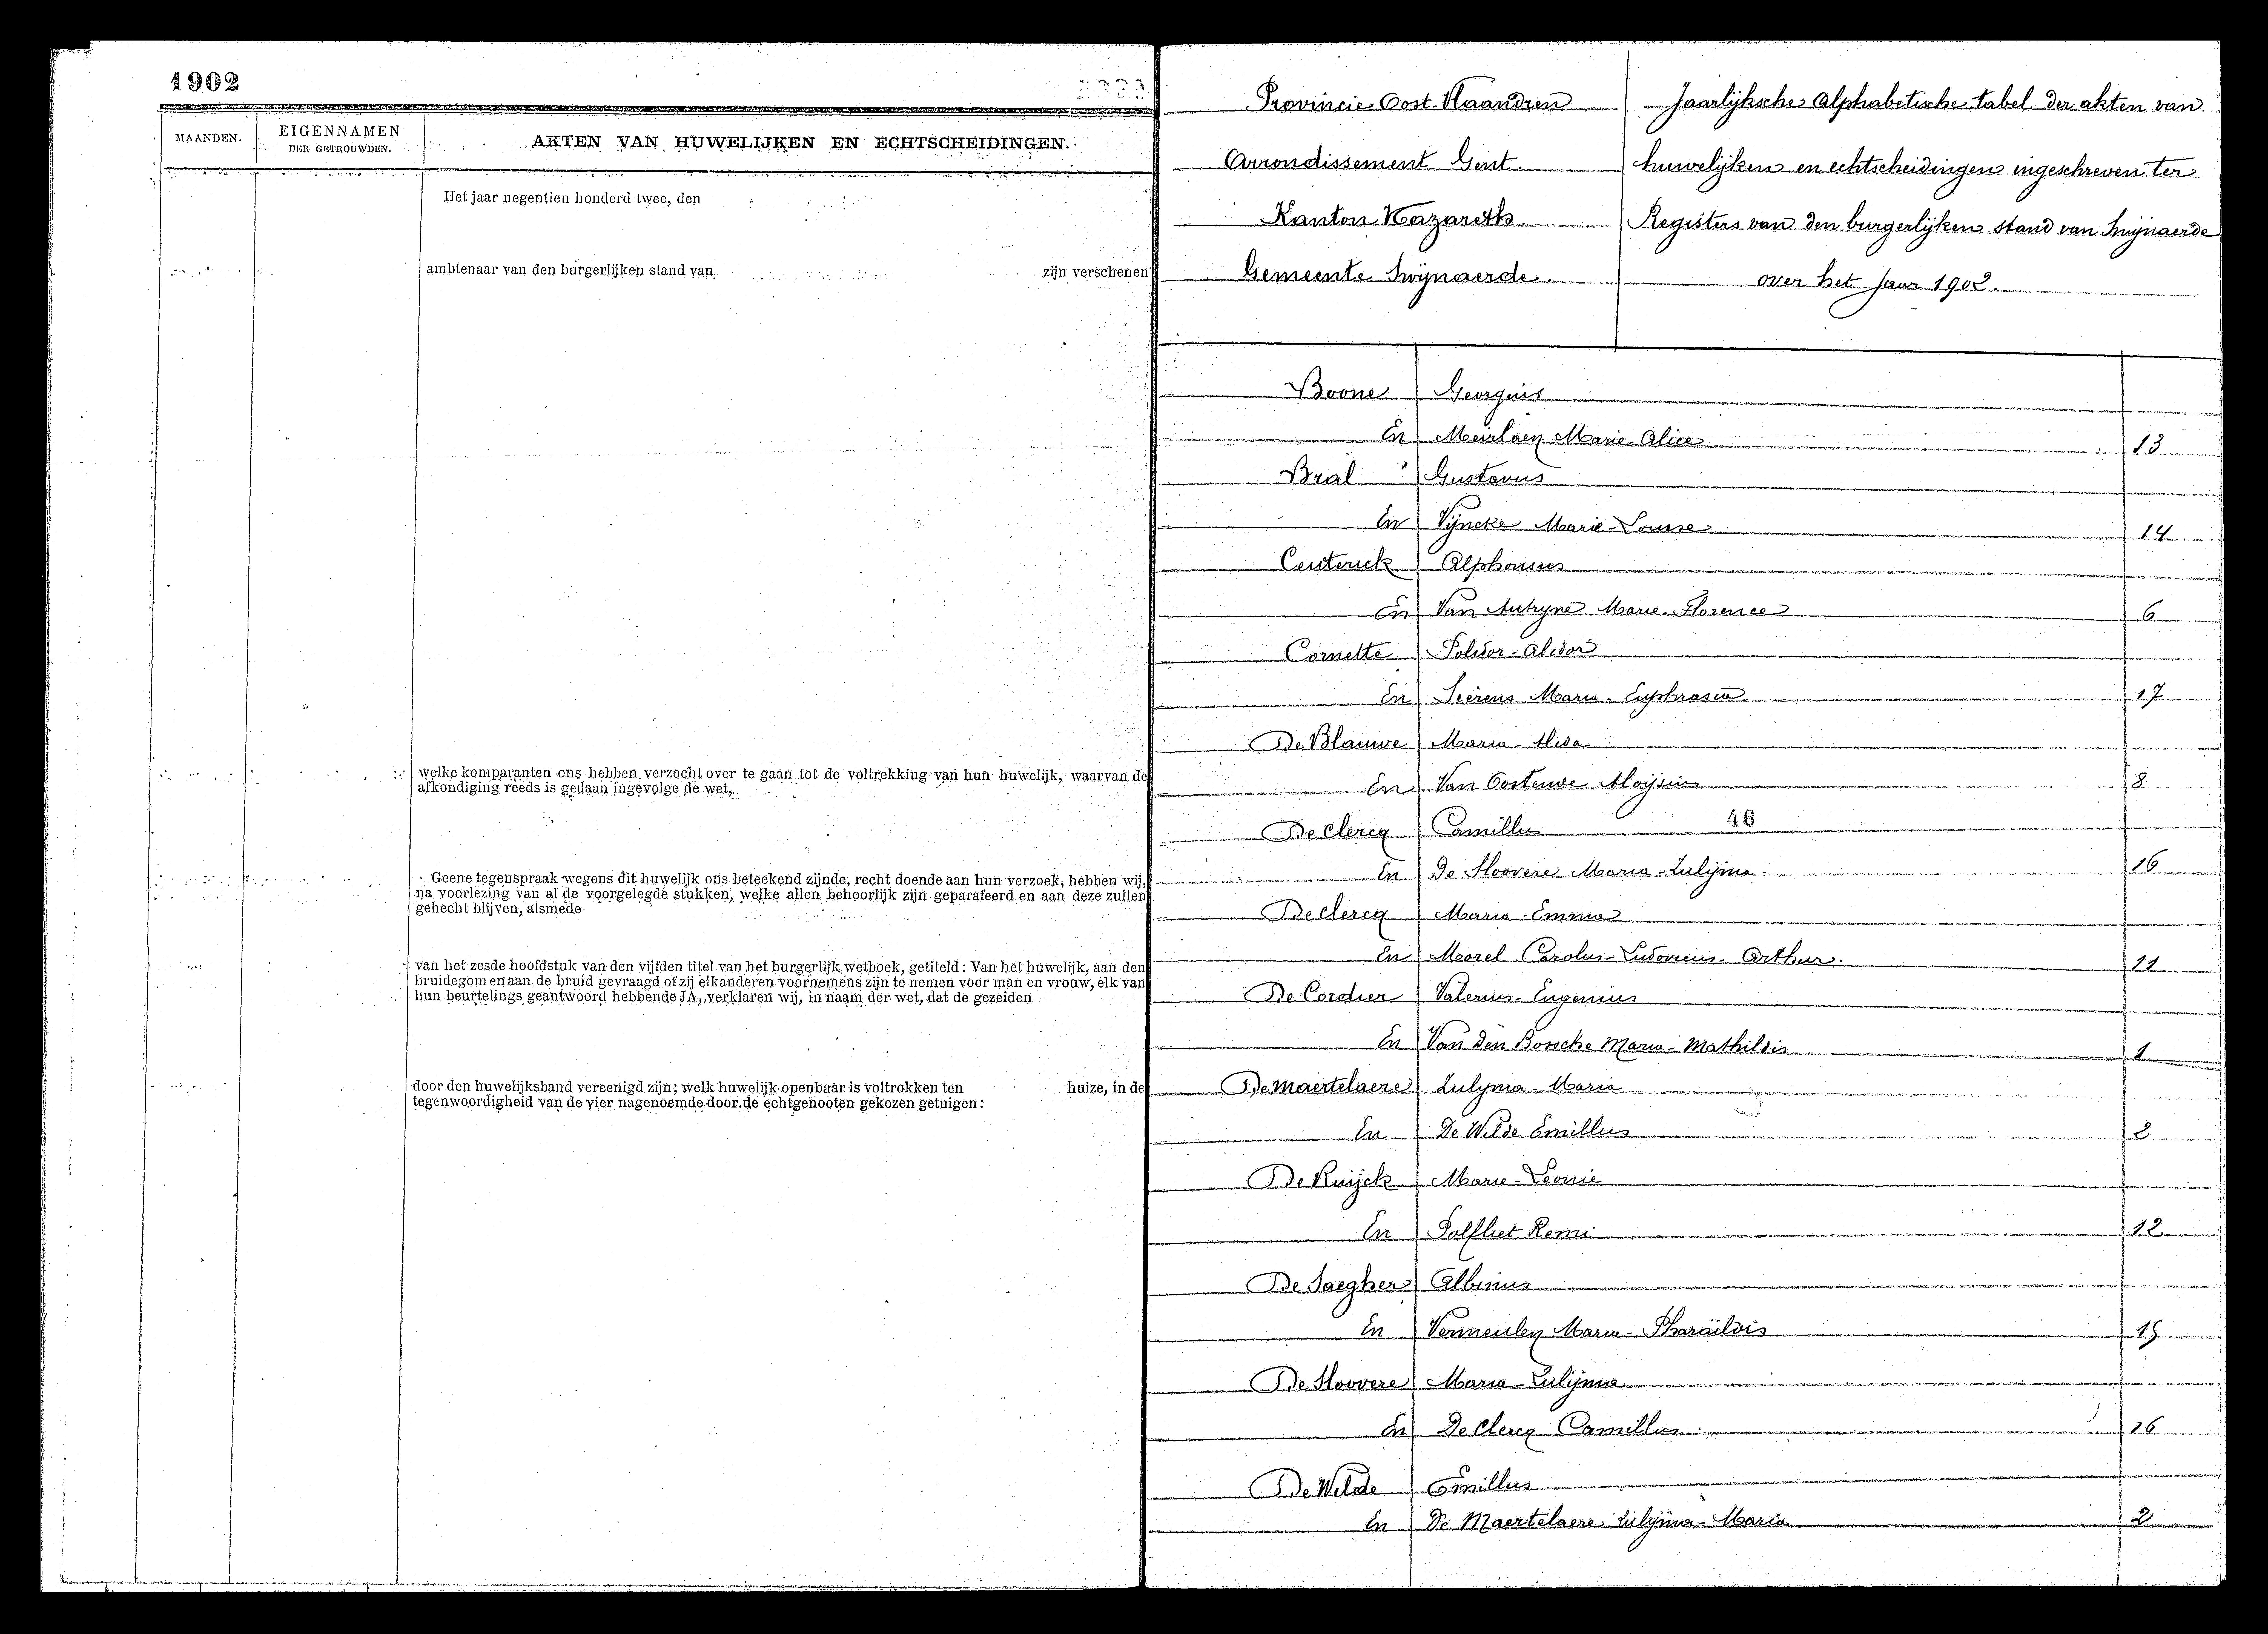 1902
MAANDEN.
EIGENNAMEN
DER GETROUWDEN.
AKTEN VAN HUWELIJKEN EN ECHTSCHEIDINGEN.
Het jaar negentien honderd twee, den
ambtenaar van den burgerlijken stand van
zijn verschenen
welke komparanten ons hebben verzocht over te gaan tot de voltrekking van hun huwelijk, waarvan de
afkondiging reeds is gedaan ingevolge de wet,
Geene tegenspraak wegens dit huwelijk ons beteekend zijnde, recht doende aan hun verzoek, hebben wij,
na voorlezing van al de voorgelegde stukken, welke allen behoorlijk zijn geparafeerd en aan deze zullen
gehecht blijven, alsmede
van het zesde hoofdstuk van den vijfden titel van het burgerlijk wetboek, getiteld: Van het huwelijk, aan den
bruidegom en aan de bruid gevraagd of zij elkanderen voornemens zijn te nemen voor man en vrouw, elk van
hun beurtelings geantwoord hebbende JA, verklaren wij, in naam der wet, dat de gezeiden
door den huwelijksband vereenigd zijn; welk huwelijk openbaar is voltrokken ten huize, in de
tegenwoordigheid van de vier nagenoemde door de echtgenooten gekozen getuigen:
Provincie Oost-Vlaandren
Arrondissement Gent.
Kanton Nazareth.
Gemeente Swijnaerde.
Jaarlijksche Alphabetische tabel der akten van
huwelijken en echtscheidingen ingeschreven ter
Registers van den burgerlijken stand van Swijnaerde
over het Jaar 1902.
Boone Georgius
En Meirlaen Marie-Alice 13
Bral Gustavus
En Vijncke Marie-Louise 14
Ceuterick Alphonsus
En Van Autryve Marie-Florence 6
Cornette Polidor-Alidor
En Seërens Maria-Euphrasia 17
De Blauwe Maria-Alida
En Van Oostende Aloijsius 8
De Clercq Camillus 46
En De Sloovere Maria-Zulijma 16
De Clercq Maria-Emma
En Morel Carolus-Ludovicus-Arthur. 11
De Cordier Valerius-Eugenius
En Van den Bossche Maria-Mathildis 1
De Maertelaere Zulyma-Maria
En De Wilde Emillus 2
De Ruijck Marie-Leonie
En Polfliet Remi 12
De Saegher Albinus
En Vermeulen Maria-Pharaïldis 15
De Sloovere Maria-Zulijma
En De Clercq Camillus 16
De Wilde Emillus
En De Maertelaere Zulijma-Maria 2